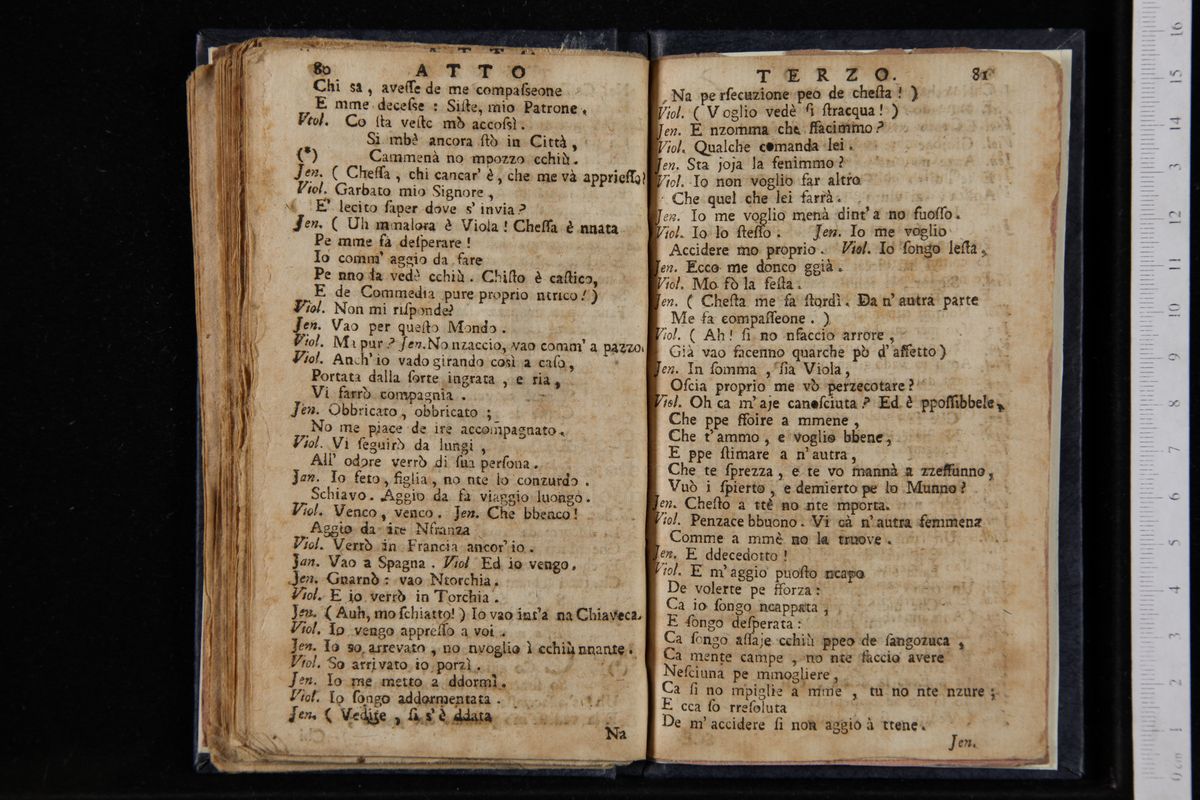 80 ATTO
Chi sà, aveſſe de me compaſseone
E mme deceſse : Siſte, mio Patrone.
Viol. Co ſta veſte mò accoſsì.
Si mbè ancora ſtò in Città,
(*) Cammenà no mpozzo cchiù.
Jen. ( Cheſſa, chi cancar' è, che me và apprieſſo?
Viol. Garbato mio Signore,
E' lecito ſaper dove s' invia?
Jen. ( Uh mmalora è Viola! Cheſſa è nnata
Pe mme fà deſperare!
Io comm' aggio da fare
Pe nno la vedè cchiù. Chiſto è caſtico,
E de Commedia pure proprio ntrico!)
Viol. Non mi riſponde?
Jen. Vao per queſto Mondo.
Viol. Ma pur? Jen. No nzaccio, vao comm' a pazzo.
Viol. Anch' io vado girando così a caſo,
Portata dalla ſorte ingrata, e ria,
Vi farrò compagnia.
Jen. Obbricato, obbricato ;
No me piace de ire accompagnato.
Viol. Vi ſeguirò da lungi,
All' odore verrò di ſua perſona.
Jan. Io feto, figlia, no nte lo conzurdo.
Schiavo. Aggio da fà viaggio luongo.
Viol. Venco, venco. Jen. Che bbenco!
Aggio da ire Nfranza
Viol. Verrò in Francia ancor' io.
Jan. Vao a Spagna. Viol Ed io vengo.
Jen. Gnarnò : vao Ntorchia.
Viol. E io verrò in Torchia.
Jen. (Auh, mo ſchiatto!) Io vao int'a na Chiaveca.
Viol. Io vengo appreſſo a voi.
Jen. Io so arrevato, no nvoglio ì cchiù nnante.
Viol. So arrivato io porzì.
Jen. Io me metto a ddormì.
Viol. Io ſongo addormentata.
Jen. ( Vedite, ſi s' è ddata
Na
TERZO. 81
Na perſecuzione peo de cheſta! )
Viol. ( Voglio vedè ſi ſtracqua! )
Jen. E nzomma che ffacimmo?
Viol. Qualche comanda lei.
Jen. Sta joja la fenimmo?
Viol. Io non voglio far altro
Che quel che lei farrà.
Jen. Io me voglio menà dint'a no fuoſſo.
Viol. Io lo ſteſſo. Jen. Io me voglio
Accidere mo proprio. Viol. Io ſongo leſta,
Jen. Ecco me donco ggià.
Viol. Mo fò la feſta.
Jen. ( Cheſta me fa ſtordì. Da n' autra parte
Me fa compaſſeone. )
Viol. ( Ah! ſi no nfaccio arrore,
Già vao facenno quarche pò d' affetto)
Jen. In ſomma, ſia Viola,
Oſcia proprio me vò perzecotare?
Viol. Oh ca m' aje canoſciuta? Ed è ppoſſibbele,
Che ppe ffoire a mmene,
Che t'ammo, e voglio bbene,
E ppe ſtimare a n' autra,
Che te ſprezza, e te vo mannà a zzeffunno,
Vuò i ſpierto, e demierto pe lo Munno?
Jen. Cheſto a ttè no nte mporta.
Viol. Penzace bbuono. Vi cà n' autra femmena
Comme a mmè no la truove.
Jen. E ddecedotto!
Viol. E m' aggio puoſto ncapo
De volerte pe fforza:
Ca io ſongo ncappata,
E ſongo deſperata:
Ca ſongo aſſaje cchiù ppeo de ſangozuca,
Ca mente campe, no nte faccio avere
Neſciuna pe mmogliere,
Ca ſi no mpiglie a mme, tu no nte nzure ;
E cca ſo rreſoluta
De m' accidere ſi non aggio à ttene.
Jen.
16
15
14
13
12
11
10
9
8
7
6
5
4
3
2
1
0 cm